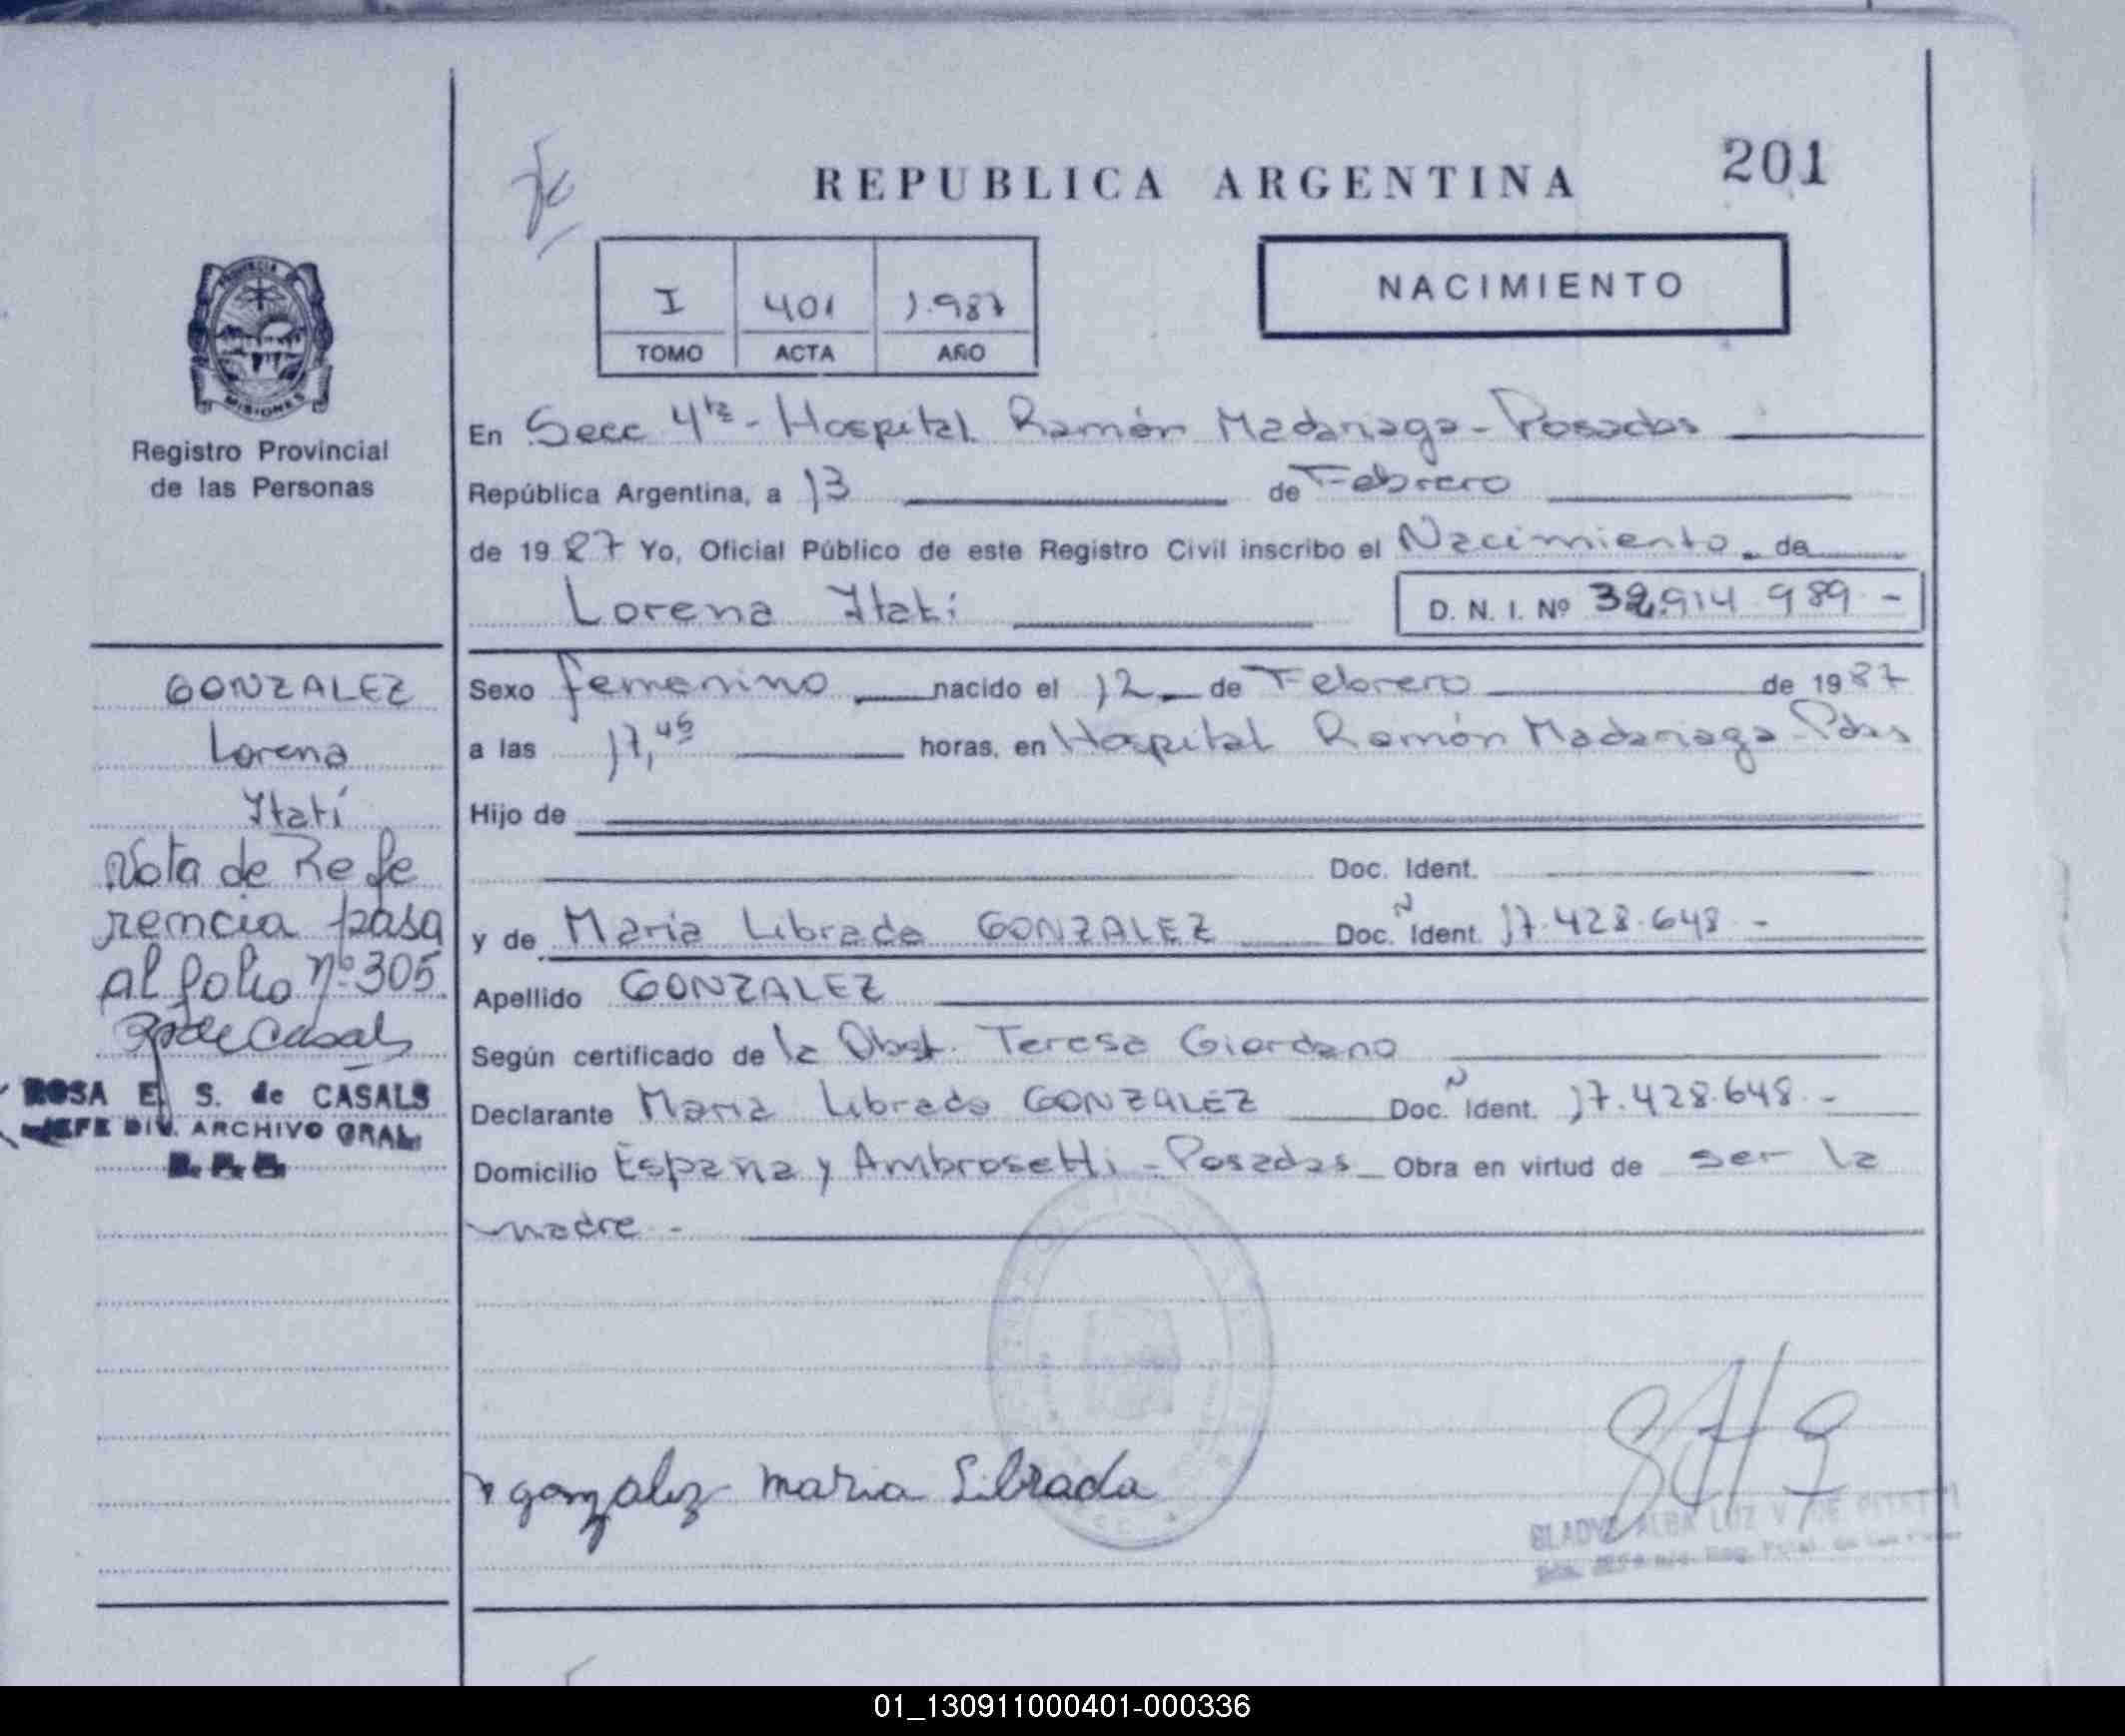 201
REPUBLICA ARGENTINA
NACIMIENTO
I 401 1.987
TOMO ACTA AÑO
PROVINCIA
MISIONES
Registro Provincial
de las Personas
En Secc 4ta - Hospital Ramón Madariaga - Posadas
República Argentina, a 13 de Febrero
de 1987 Yo, Oficial Público de este Registro Civil inscribo el Nacimiento de
Lorena Itatí D. N. I. Nº 32.914.989 -
GONZALEZ
Lorena
Itatí
Nota de Refe
rencia pasa
al folio nº 305.
R de Casals
ROSA E. S. de CASALS
JEFE DIV. ARCHIVO GRAL.
Sexo femenino nacido el 12 de Febrero de 1987
a las 17,45 horas, en Hospital Ramón Madariaga - Pdas
Hijo de
Doc. Ident.
y de Maria Librada GONZALEZ Doc. N Ident. 17.428.648 -
Apellido GONZALEZ
Según certificado de la Obst. Teresa Giordano
Declarante Maria Librada GONZALEZ Doc. N Ident. 17.428.648 -
Domicilio España y Ambrosetti - Posadas Obra en virtud de ser la
madre -
gonzalez maria Librada
GLADYS ALBA LUZ V. DE
01_130911000401-000336